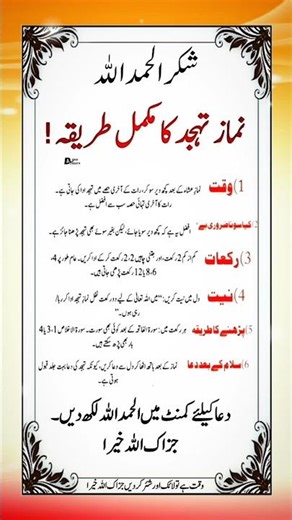 شکر الحمد اللہ
نماز تہجد کا مکمل طریقہ!
1) وقت نماز عشاء کے بعد کچھ دیر سو کر، رات کے آخری حصے میں تہجد ادا کی جاتی ہے۔
رات کا آخری تہائی حصہ سب سے افضل ہے۔
2) کیا سونا ضروری ہے؟ افضل یہ ہے کہ کچھ دیر سویا جائے، لیکن بغیر سوئے بھی تہجد پڑھنا جائز ہے۔
3) رکعات کم از کم 2 رکعت، اور جتنی چاہیں 2،2 رکعت کر کے ادا کریں۔ عام طور پر 4،
6، 8 یا 12 رکعت پڑھی جاتی ہیں۔
4) نیت دل میں نیت کریں: "میں اللہ تعالیٰ کے لیے دو رکعت نفل نماز تہجد ادا کر رہا/
رہی ہوں۔"
5) پڑھنے کا طریقہ ہر رکعت میں: سورۃ الفاتحہ کے بعد کوئی بھی سورت۔ سورۃ الاخلاص 1-3 یا 4
بار بھی پڑھ سکتے ہیں۔
6) سلام کے بعد دعا نماز کے بعد ہاتھ اٹھا کر دل سے دعا کریں، کیونکہ تہجد کی دعا بہت جلد قبول
ہوتی ہے۔
دعا کیلئے کمنٹ میں الحمد اللہ لکھ دیں۔
جزاک اللہ خیرا
وقت ہے تو لائک اور شئر کر دیں جزاک اللہ خیرا